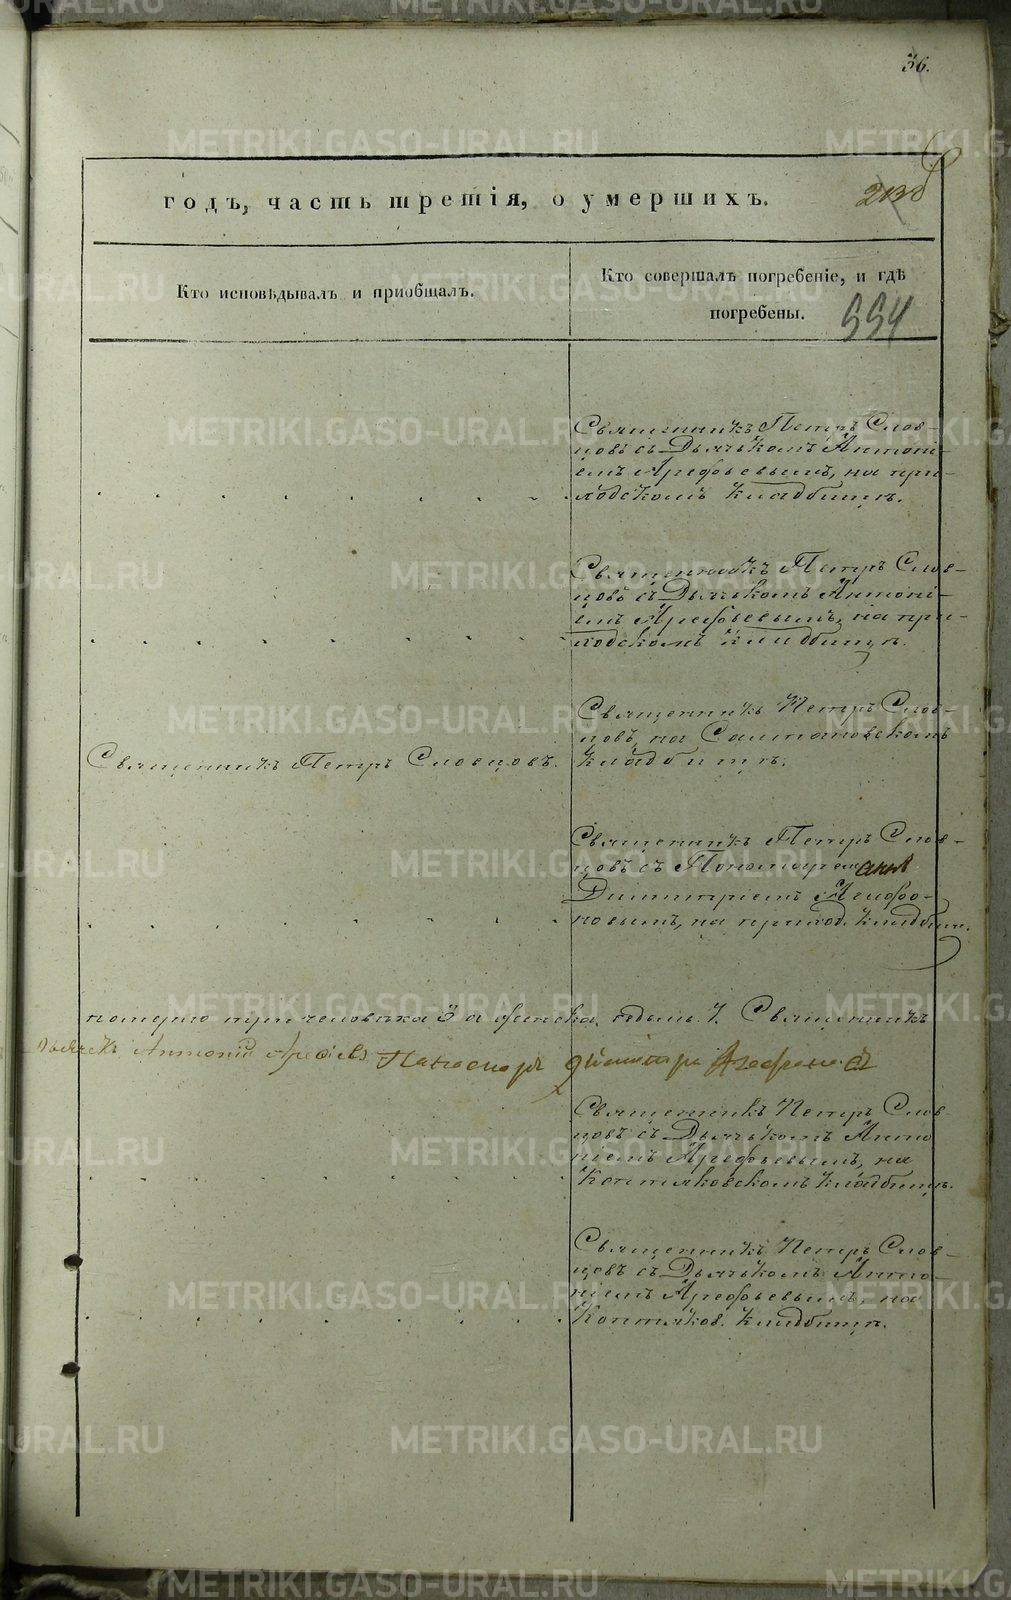 36.
годъ, часть третія, о умершихъ.
Кто исповѣдывалъ и приобщалъ.
Кто совершалъ погребеніе, и гдѣ
погребены.
554
Священникъ Петръ Слов-
цовъ съ Дьячькомъ Антоні-
емъ Арефьевымъ, на при-
ходскомъ кладбищѣ.
Священникъ Петръ Слов-
цовъ съ Дьячькомъ Антоні-
емъ Арефьевымъ, на при-
ходскомъ кладбищѣ.
Священникъ Петръ Слов-
цовъ, на Салтановскомъ
кладбищѣ.
Священникъ Петръ Словцовъ.
Священникъ Петръ Слов-
цовъ съ Пономаремъ
Димитріемъ Агафо-
новымъ, на приход. кладбищ.
померло три человѣка а женска Священникъ
Дьячекъ Антоній Арефіевъ Пономарь
Священникъ Петръ Слов-
цовъ съ Дьячькомъ Анто
ніемъ Арефьевымъ, на
Коптяковскомъ кладбищѣ.
Священникъ Петръ Слов-
цовъ съ Дьячькомъ Анто-
ніемъ Арефьевымъ, на
Коптяков. кладбищѣ.
METRIKI.GASO-URAL.RU